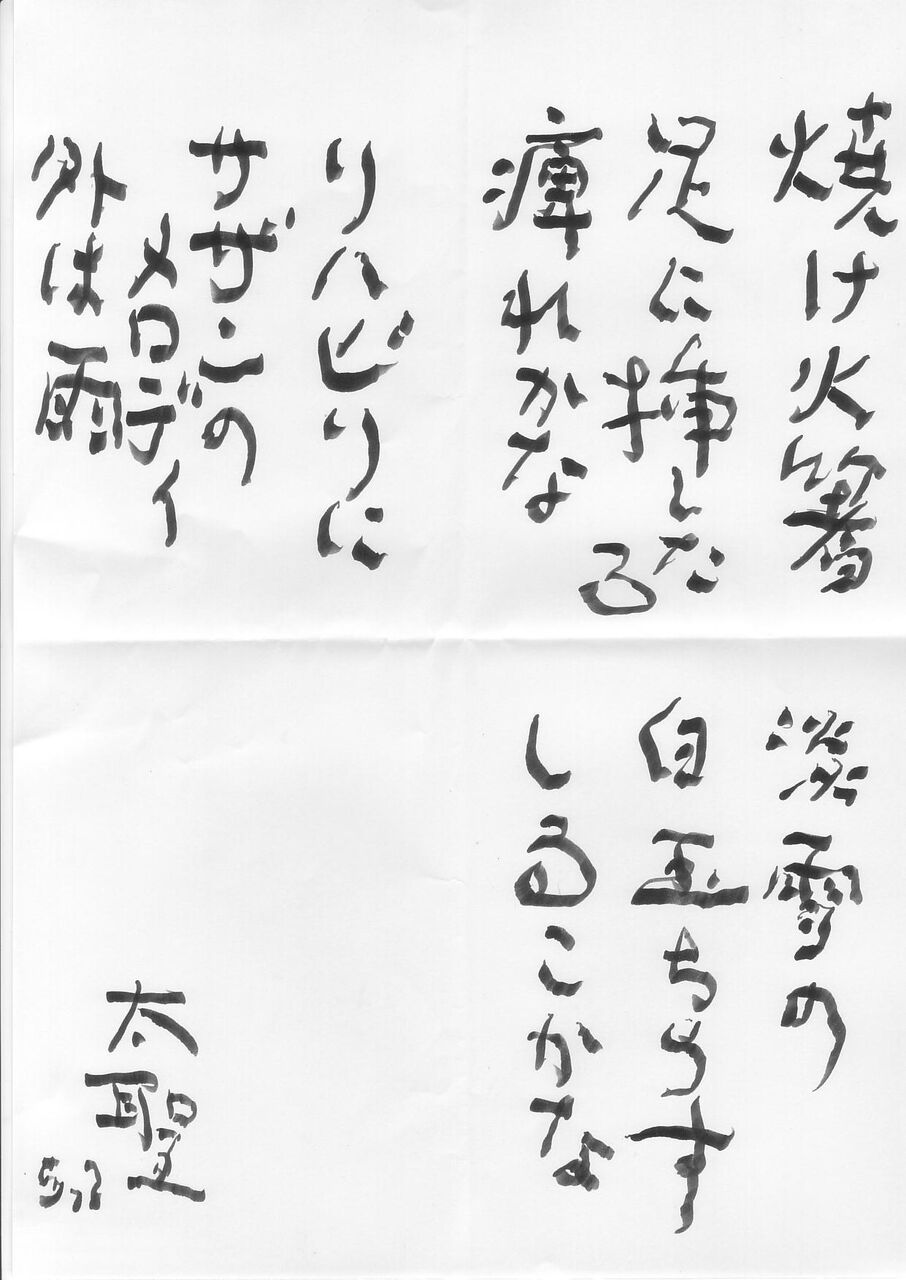 焼け火箸
足に挿したる
痺れかな
リハビリに
サザンの
メロディ
外は雨
淡雪の
白玉ちらす
しるこかな
太聖